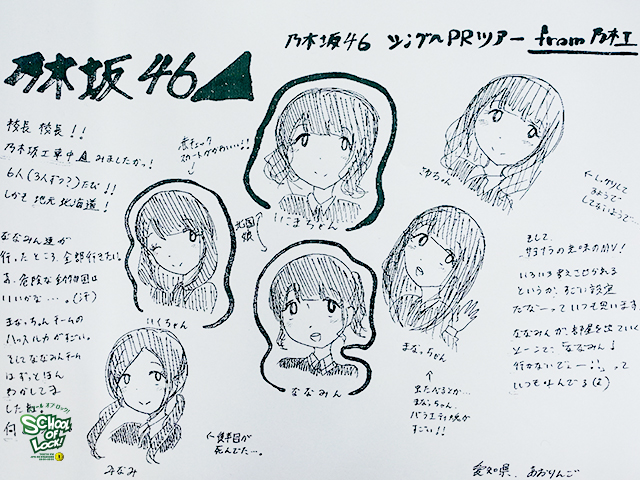 乃木坂46 シングルPRツアー from 乃木工
乃木坂46
校長 校長!!
乃木坂工事中 みましたかっ!
6人(3人ずつ?)たび!!
しかも 地元 北海道!
ななみん達が
行ったところ、全部行きたい。
あ、危険な動物園は
いいかな…。(汗)
まなっちゃんチームの
ハッスル力がすごい。
そしてななみんチーム
はずっとほん
わかしてま
した
何
赤チェック
スカートがかわいい!!
にまちゃん
ゆちゃん
←しっかりして
みるようで
してないようで…
北国
娘
いくちゃん
ななみん
まなっちゃん
↑
虫たべるとか…
まなっちゃん、
バラエティ魂が
すごい!!
みなみ
←後半目が
死んでた…。
まして、
サヨナラの意味のMV!
いろいろ考えさせられる
というか、すごい設定
だな〜っていつも思います
ななみんが、部屋を出ていく
シーンで、「ななみん!
行かないでぇ〜!」って
いつも叫んでる(笑)
愛知県、あおりんご
SCHOOL OF LOCK!